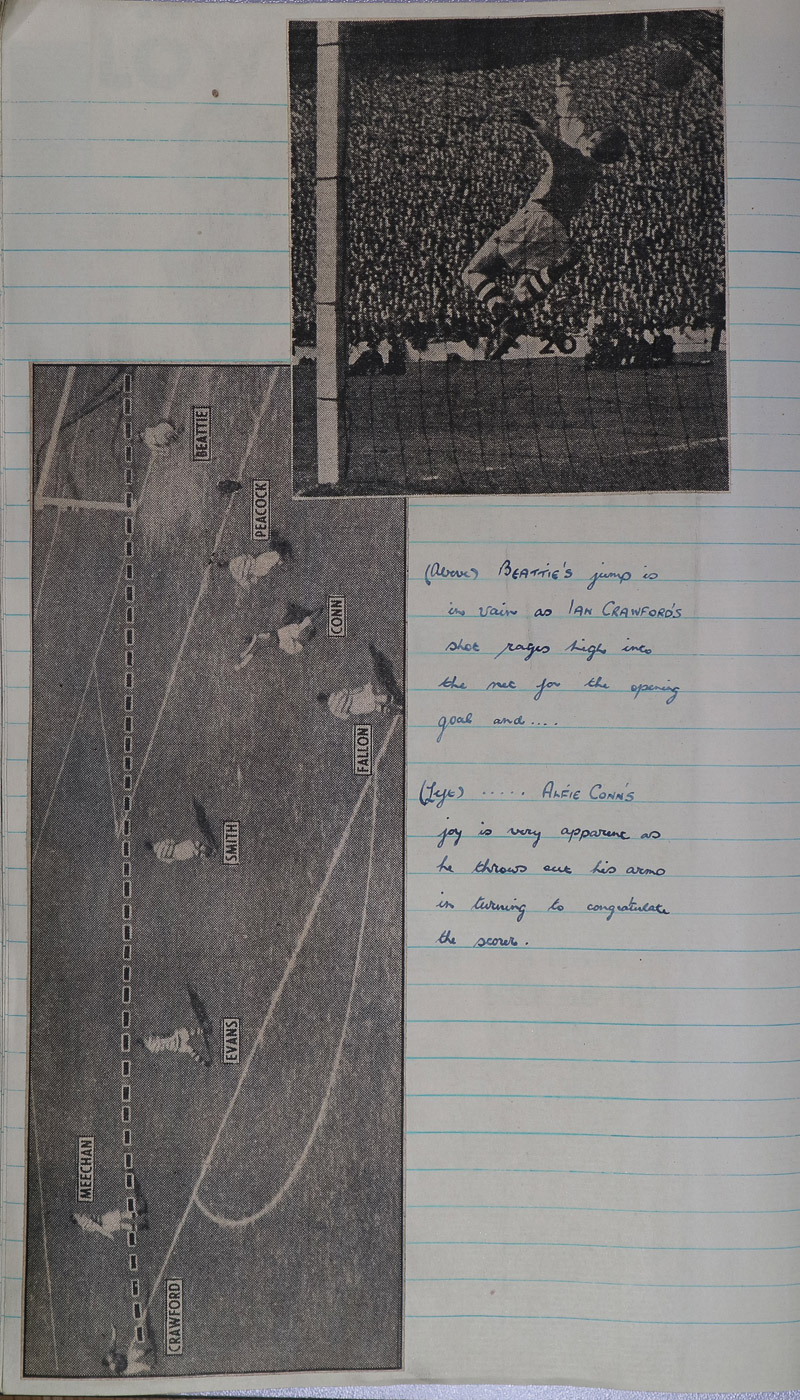 20
BEATTIE
PEACOCK
CONN
FALLON
SMITH
EVANS
MEECHAN
CRAWFORD
(Above) BEATTIE'S jump is
in vain as IAN CRAWFORD'S
shot rages high into
the net for the opening
goal and....
(Left) ..... ALFIE CONN'S
joy is very apparent as
he throws out his arms
in turning to congratulate
the scorer.